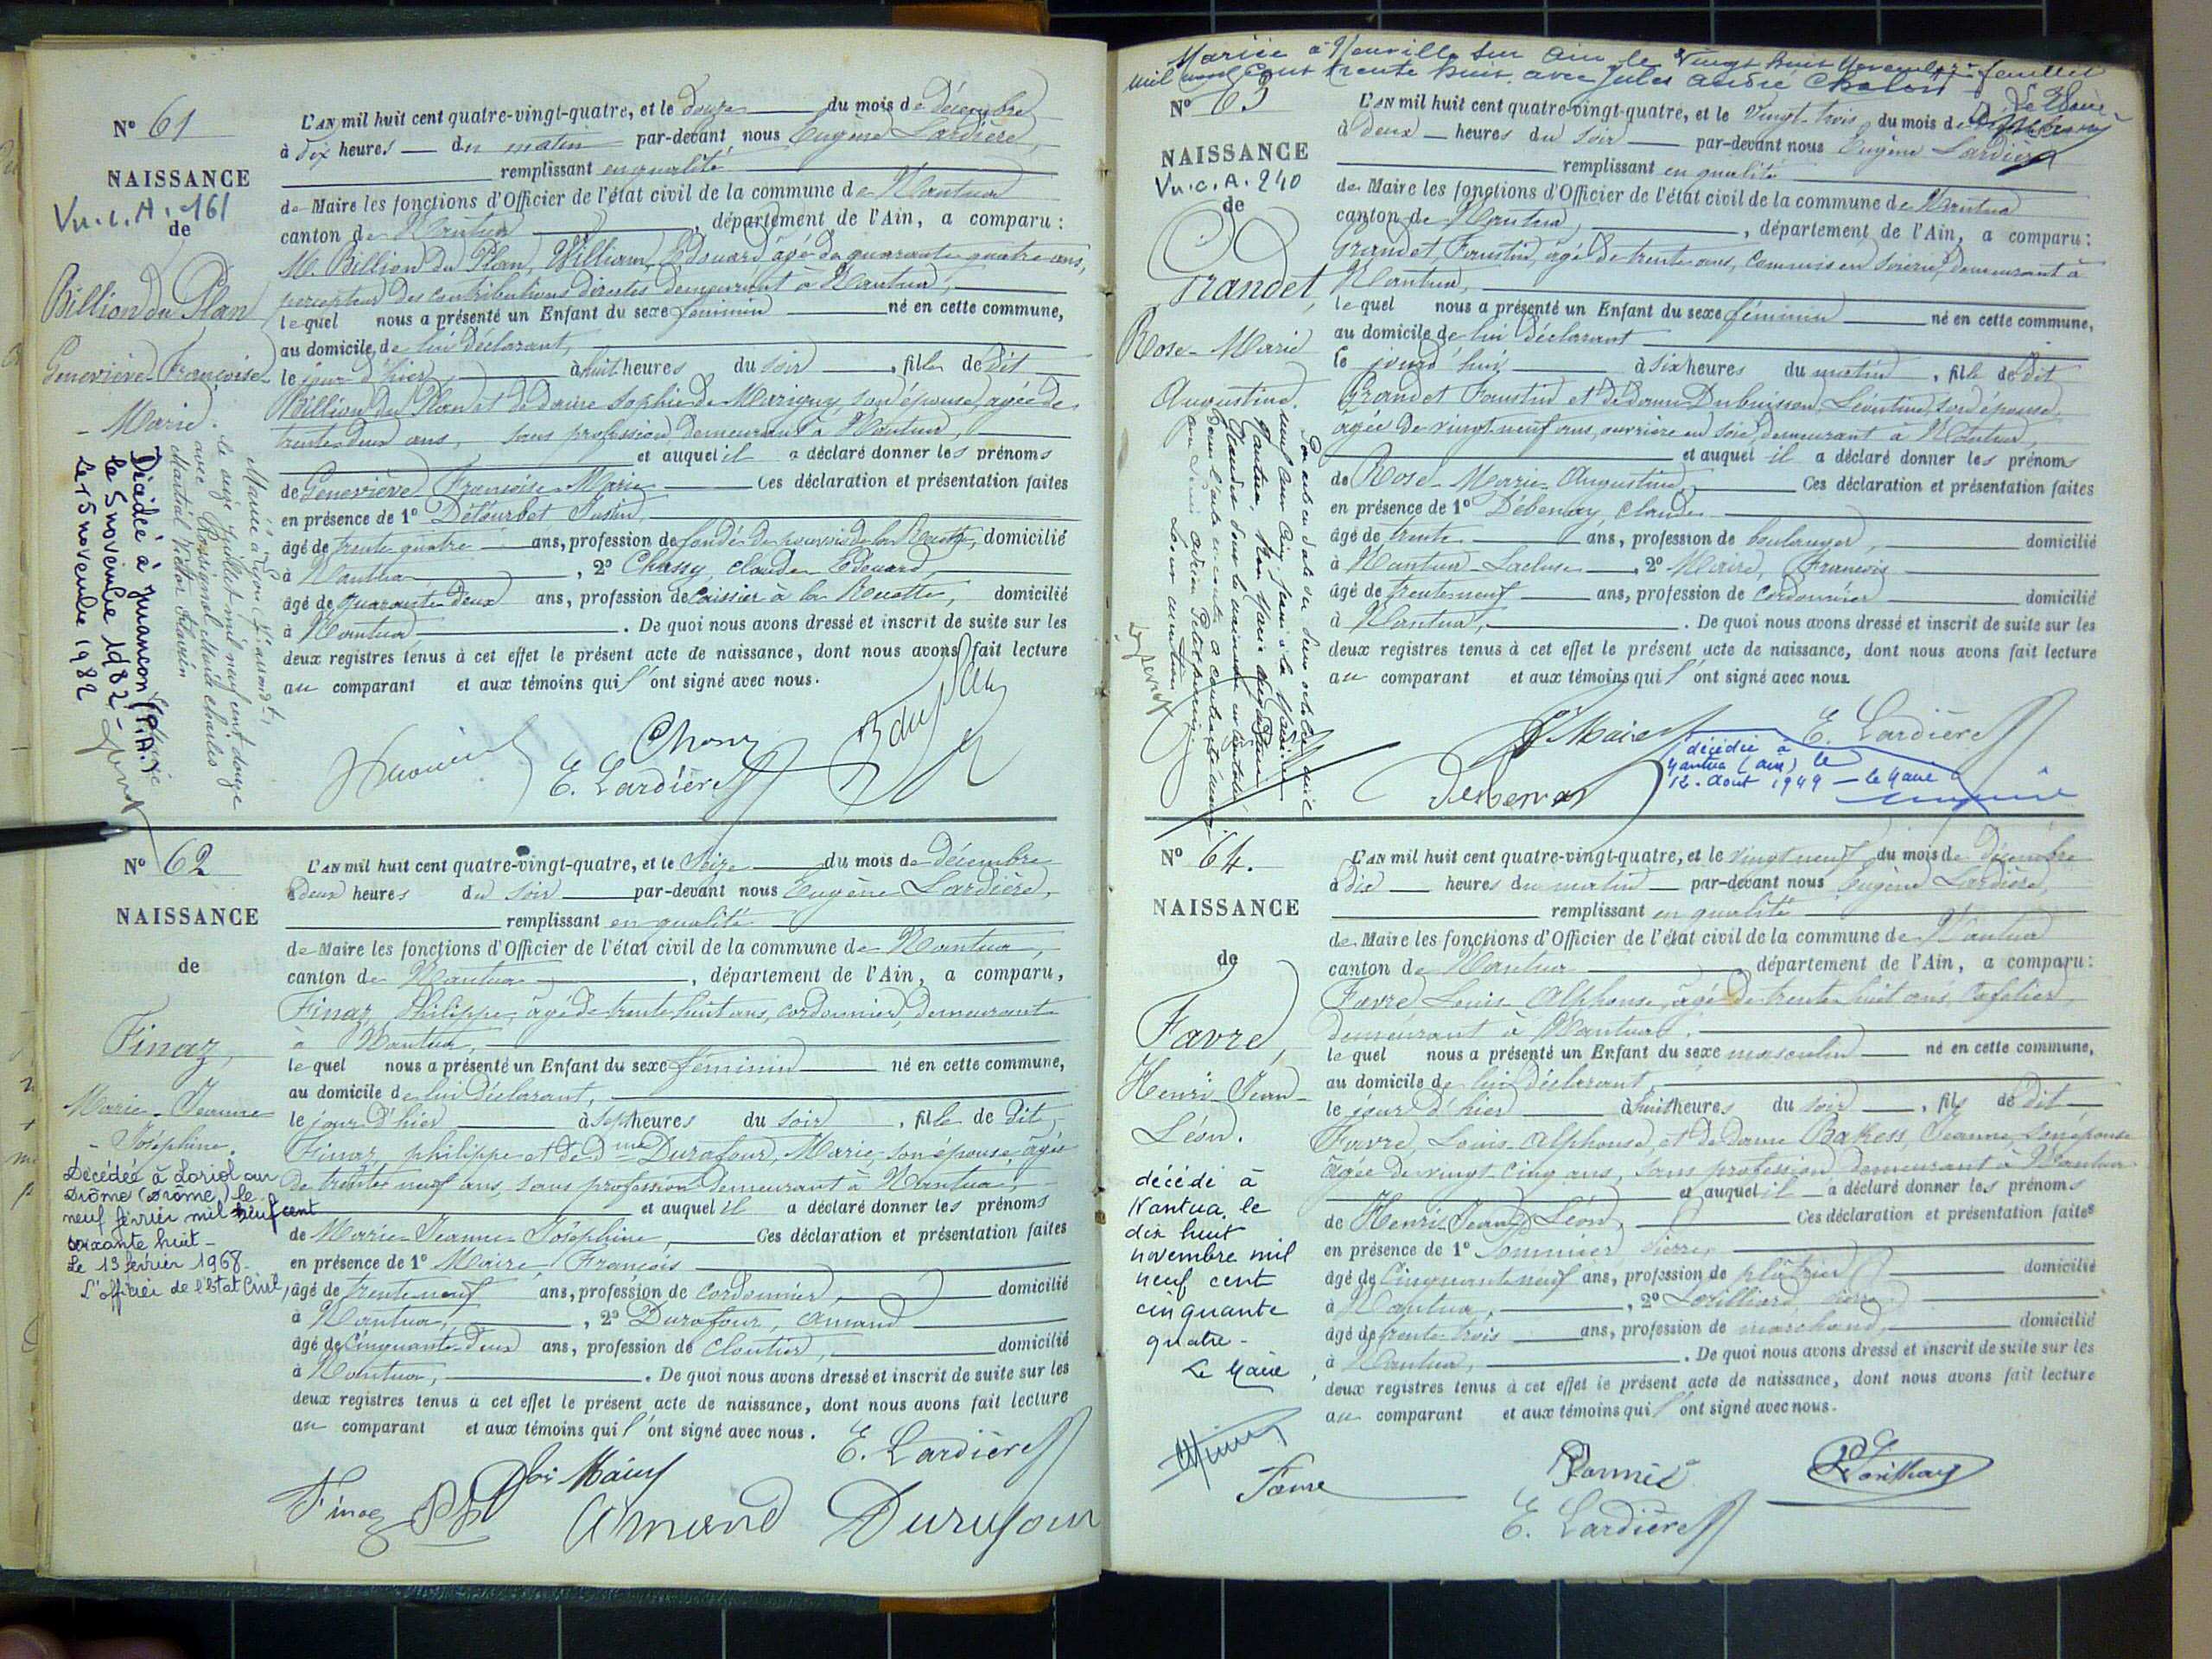 N° 61
NAISSANCE
Vu. c. A. 161
de
Billion du Plan
Geneviève-Françoise
- Marie.
Mariée à Lyon
le onze juillet mil neuf cent douze
avec Rossignol Marie Charles
Martial Victor
Décédée à Jurançon (P.A.)
le 5 novembre 1982 -
Le 15 novembre 1982
L'AN mil huit cent quatre-vingt-quatre, et le douze du mois de Décembre
à dix heures du matin par-devant nous Eugène Lardière,
remplissant en qualité
de Maire les fonctions d'Officier de l'état civil de la commune de Nantua
canton de Nantua, département de l'Ain, a comparu:
M. Billion du Plan, William, Edouard, âgé de quarante quatre ans,
percepteur des contributions directes demeurant à Nantua,
lequel nous a présenté un Enfant du sexe féminin né en cette commune,
au domicile de lui déclarant,
le jour d'hier à huit heures du soir, fille de dit
Billion du Plan et de dame Sophie de Marigny, son épouse, agée de
trente deux ans, sans profession, demeurant à Nantua,
et auquel il a déclaré donner les prénoms
de Geneviève Françoise Marie Ces déclaration et présentation faites
en présence de 1° Détourbet Justin,
âgé de trente quatre ans, profession de fondé de pouvoirs de la Recette, domicilié
à Nantua, 2° Chassy, Claude Edouard,
âgé de quarante deux ans, profession de Caissier à la Recette, domicilié
à Nantua. De quoi nous avons dressé et inscrit de suite sur les
deux registres tenus à cet effet le présent acte de naissance, dont nous avons fait lecture
au comparant et aux témoins qui l'ont signé avec nous.
Chassy
B du Plan
E. Lardière
N° 62
NAISSANCE
de
Finaz,
Marie-Jeanne
- Joséphine.
Décédée à Loriol sur
Drôme (Drôme) le
neuf février mil neuf cent
soixante huit -
Le 13 février 1968.
L'officier de l'Etat Civil,
L'AN mil huit cent quatre-vingt-quatre, et le Seize du mois de décembre
à deux heures du soir par-devant nous Eugène Lardière,
remplissant en qualité
de Maire les fonctions d'Officier de l'état civil de la commune de Nantua,
canton de Nantua, département de l'Ain, a comparu,
Finaz, Philippe, âgé de trente huit ans, cordonnier, demeurant
à Nantua,
lequel nous a présenté un Enfant du sexe féminin né en cette commune,
au domicile de lui déclarant,
le jour d'hier à sept heures du soir, fille de dit
Finaz, philippe et de dme Durafour, Marie, son épouse, agée
de trente neuf ans, sans profession demeurant à Nantua,
et auquel il a déclaré donner les prénoms
de Marie-Jeanne-Joséphine, Ces déclaration et présentation faites
en présence de 1° Maire, François
âgé de trente neuf ans, profession de cordonnier, domicilié
à Nantua, 2° Durafour, Amand
âgé de Cinquante deux ans, profession de cloutier, domicilié
à Nantua,. De quoi nous avons dressé et inscrit de suite sur les
deux registres tenus à cet effet le présent acte de naissance, dont nous avons fait lecture
au comparant et aux témoins qui l'ont signé avec nous.
E. Lardière
Finaz Ph
Amand Durafour
Mariée à Neuville sur Ain le Vingt huit Novembre
mil neuf cent trente huit avec Jules André Chalon
Le Maire
N° 63
NAISSANCE
Vu. c. A. 240
de
Grandet,
Rose-Marie
Augustine.
L'AN mil huit cent quatre-vingt-quatre, et le Vingt-trois du mois de Décembre
à deux heures du soir par-devant nous Eugène Lardière
remplissant en qualité
de Maire les fonctions d'Officier de l'état civil de la commune de Nantua
canton de Nantua, département de l'Ain, a comparu:
Grandet, Faustin, âgé de trente ans, commis en soierie, demeurant à
Nantua,
lequel nous a présenté un Enfant du sexe féminin né en cette commune,
au domicile de lui déclarant
le jourd'hui à six heures du matin, fille de dit
Grandet Faustin et de dame Dubuisson, Léontine, son épouse,
âgée de vingt-neuf ans, ouvrière en soie, demeurant à Nantua,
et auquel il a déclaré donner les prénoms
de Rose-Marie-Augustine, Ces déclaration et présentation faites
en présence de 1° Débenay, Claude
âgé de trente ans, profession de boulanger, domicilié
à Nantua-Lacluse, 2° Maire, François
âgé de trente neuf ans, profession de Cordonnier domicilié
à Nantua,. De quoi nous avons dressé et inscrit de suite sur les
deux registres tenus à cet effet le présent acte de naissance, dont nous avons fait lecture
au comparant et aux témoins qui l'ont signé avec nous.
E. Lardière
décédée à
Nantua (Ain) le
12. Août 1949 - le Maire
N° 64.
NAISSANCE
de
Favre,
Henri-Jean-
Léon.
décédé à
Nantua, le
dix huit
novembre mil
neuf cent
cinquante
quatre -
Le Maire,
L'AN mil huit cent quatre-vingt-quatre, et le vingt neuf du mois de décembre
à dix heures du matin par-devant nous Eugène Lardière,
remplissant en qualité
de Maire les fonctions d'Officier de l'état civil de la commune de Nantua
canton de Nantua département de l'Ain, a comparu:
Favre, Louis-Alphonse, âgé de trente huit ans, Cafetier,
demeurant à Nantua.
lequel nous a présenté un Enfant du sexe masculin né en cette commune,
au domicile de lui déclarant,
le jour d'hier à huit heures du soir, fils de dit
Favre, Louis-Alphonse, et de Dame Bakess, Jeanne, son épouse
âgée de vingt-cinq ans, sans profession demeurant à Nantua
et auquel il a déclaré donner les prénoms
de Henri Jean Léon, Ces déclaration et présentation faites
en présence de 1° Pommier, Pierre,
âgé de Cinquante neuf ans, profession de plâtrier domicilié
à Nantua, 2° Lorilliard, Pierre
âgé de trente-trois ans, profession de marchand, domicilié
à Nantua,. De quoi nous avons dressé et inscrit de suite sur les
deux registres tenus à cet effet le présent acte de naissance, dont nous avons fait lecture
au comparant et aux témoins qui l'ont signé avec nous.
Favre
E. Lardière